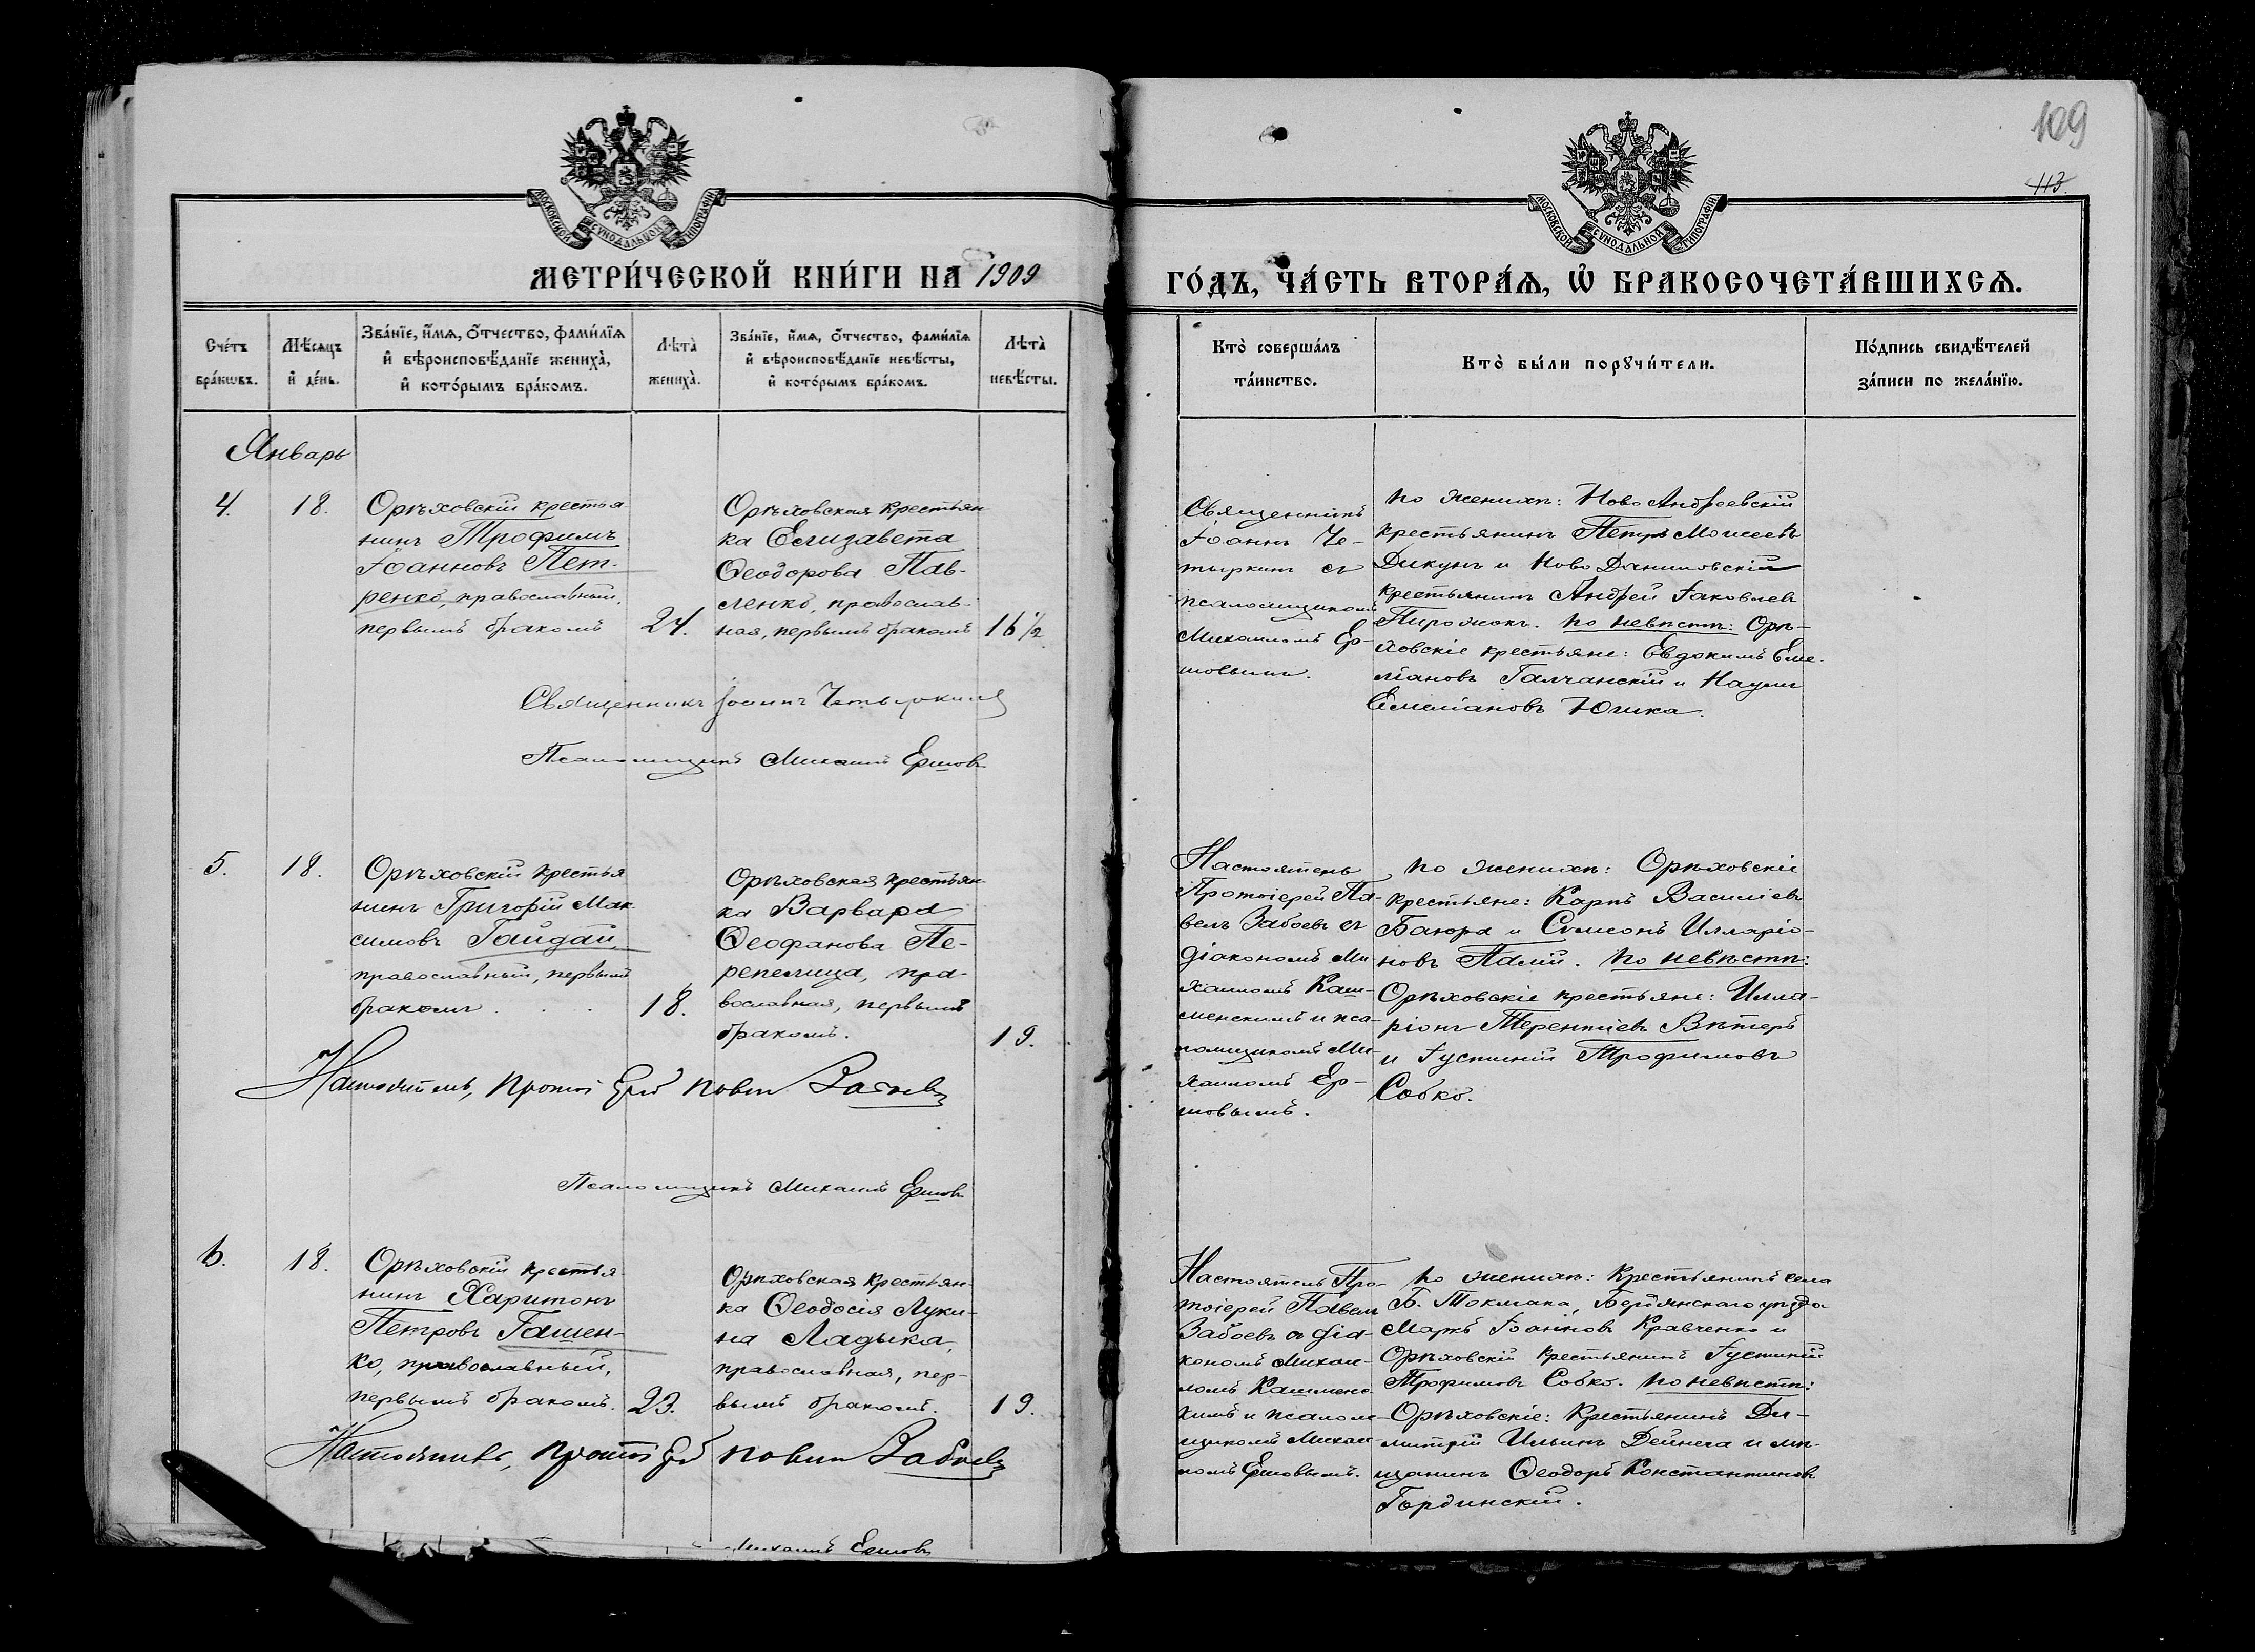 109
113.
МОСКОВСКОЙ СѴНОДАЛЬНОЙ ТИПОГРАФІИ
МОСКОВСКОЙ СѴНОДАЛЬНОЙ ТИПОГРАФІИ
МЕТРИ́ЧЕСКОЙ КНИ́ГИ НА 1909
ГО́ДЪ, ЧА́СТЬ ВТОРА́Ѧ, Ѡ҆ БРАКОСОЧЕТА́ВШИХСѦ.
Сче́тъ
бра́кѡвъ.
Мѣ́сѧцъ
и҆ де́нь.
Зва́нїе, и҆́мѧ, ѻ҆́тчество, фами́лїѧ
и҆ вѣроисповѣ́данїе жениха̀,
и҆ кото́рымъ бра́комъ.
Лѣта̀
жениха̀.
Зва́нїе, и҆́мѧ, ѻ҆́тчество, фами́лїѧ
и҆ вѣроисповѣ́данїе невѣ́сты,
и҆ кото́рымъ бра́комъ.
Лѣта̀
невѣ́сты.
Кто̀ соверша́лъ
та́инство.
Кто̀ бы́ли порꙋчи́тели.
По́дпись свидѣ́телей
за́писи по жела́нїю.
Январь
4.
18.
Орѣховскій крестья
нинъ Трофимъ
Іоанновъ Пет-
ренко, православный,
первымъ бракомъ
24.
Орѣховская крестьян-
ка Елизавета
Ѳеодорова Пав-
ленко, православ-
ная, первымъ бракомъ
16½
Священникъ
Іоаннъ Че-
тыркинъ съ
псаломщикомъ
Михаиломъ Ер-
шовымъ.
по женихѣ: Ново Андреевскій
крестьянинъ Петръ Моисеевъ
Дикунъ и Ново Даниловскій
крестьянинъ Андрей Іаковлевъ
Пирожокъ. по невѣстѣ: Орѣ-
ховскіе крестьяне: Евдокимъ Еме-
ліановъ Галчанскій и Наумъ
Емеліановъ Юшка.
Священникъ Іоаннъ Четыркинъ
Псаломщикъ Михаилъ Ершовъ
5.
18.
Орѣховскій крестья
нинъ Григорій Мак-
симовъ Гайдай,
православный, первымъ
бракомъ . . .
18.
Орѣховская крестьян-
ка Варвара
Ѳеофанова Пе-
репелица, пра-
вославная, первымъ
бракомъ.
19.
Настоятель
Протоіерей Па-
велъ Забоевъ съ
діакономъ Ми-
хаиломъ Каш-
менскимъ и пса-
ломщикомъ Ми-
хаиломъ Ер-
шовымъ.
по женихѣ: Орѣховскіе
крестьяне: Карпъ Василіевъ
Баюра и Сѵмеонъ Илларіо-
новъ Палій. по невѣстѣ:
Орѣховскіе крестьяне: Илла-
ріонъ Терентіевъ Вѣтеръ
и Іустиній Трофимовъ
Собко.
Настоятель, Протоіерей Павелъ Забоевъ
Псаломщикъ Михаилъ Ершовъ
6.
18.
Орѣховскій крестья-
нинъ Харитонъ
Петровъ Гашен-
ко, православный,
первымъ бракомъ.
23.
Орѣховская крестьян-
ка Ѳеодосія Луки-
на Ладыка,
православная, пер-
вымъ бракомъ.
19.
Настоятель Про-
тоіерей Павелъ
Забоевъ съ діа-
кономъ Михаи-
ломъ Кашменс-
кимъ и псалом-
щикомъ Михаи-
ломъ Ершовымъ.
по женихѣ: Крестьянинъ села
Б. Токмака, Бердянскаго уѣзда
Маркъ Іоанновъ Кравченко и
Орѣховскій крестьянинъ Іустиній
Трофимовъ Собко. по невѣстѣ:
Орѣховскіе: Крестьянинъ Ди-
митрій Ильинъ Дейнега и мѣ-
щанинъ Ѳеодоръ Константиновъ
Гординскій.
Настоятель, Протоіерей Павелъ Забоевъ
Михаилъ Ершовъ